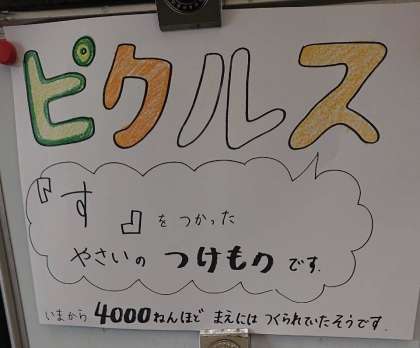 ピクルス
『す』をつかった
やさいの つけもの です.
いまから 4000ねんほど まえには つくられていたそうです.